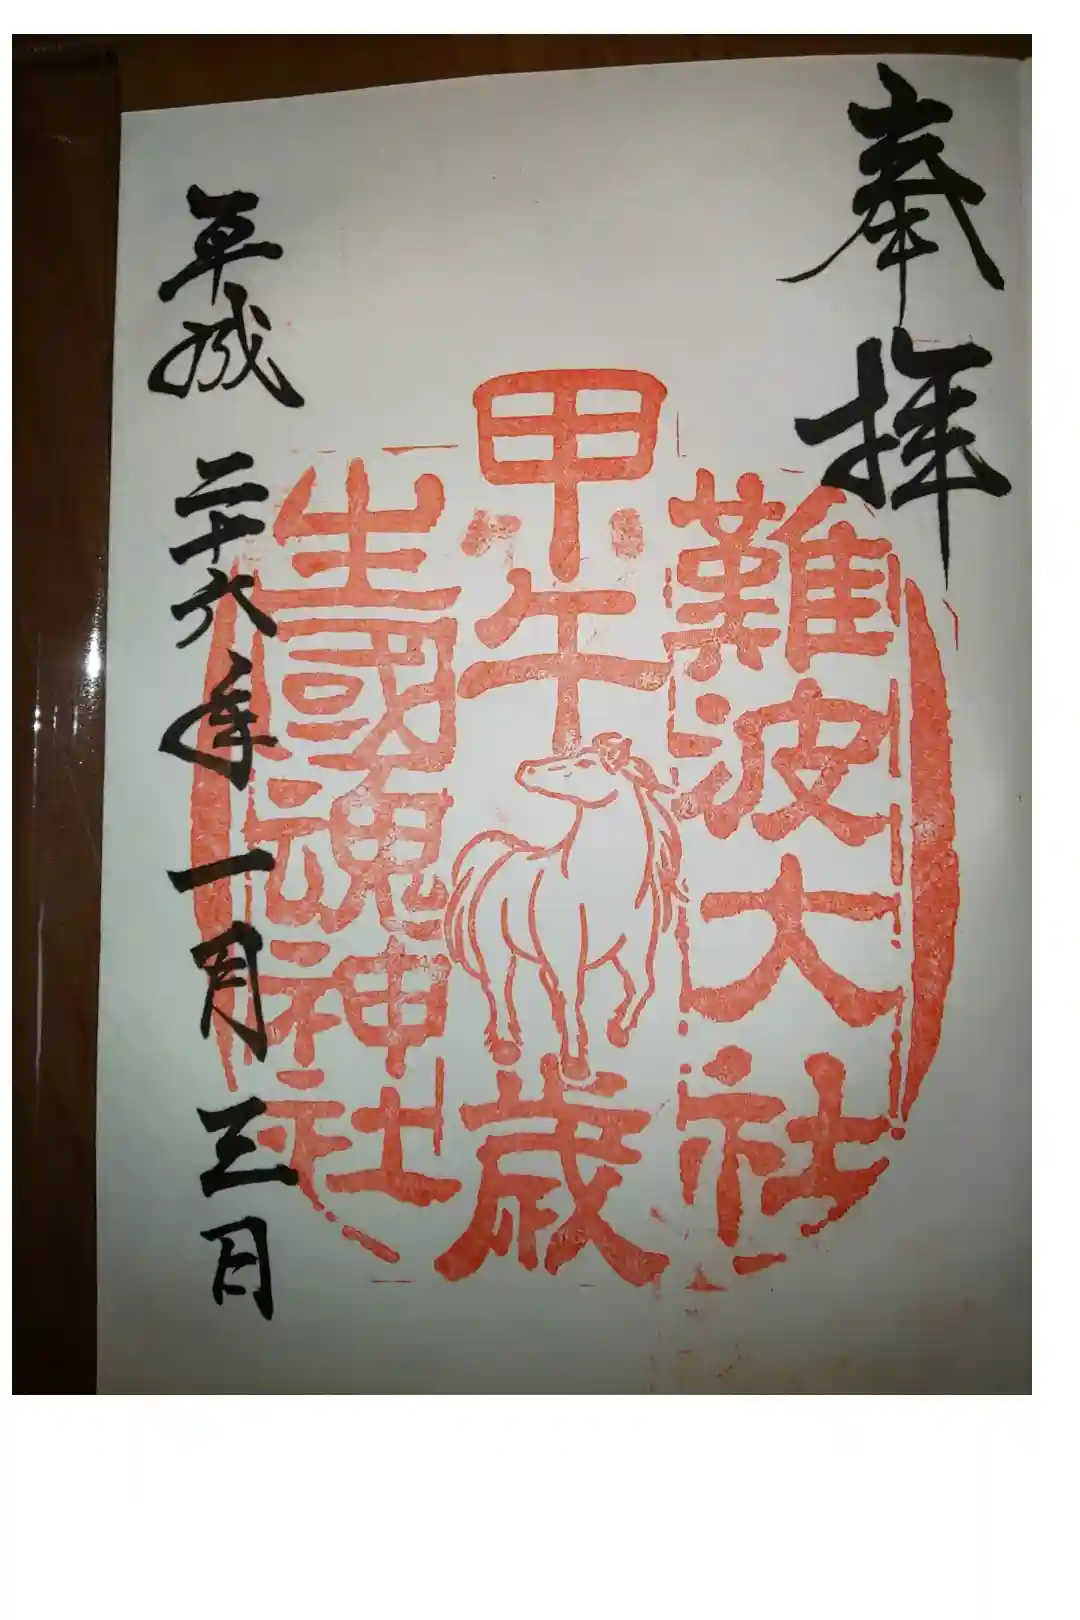 奉拝
難波大社
甲午歳
生國魂神社
平成二十六年一月三日